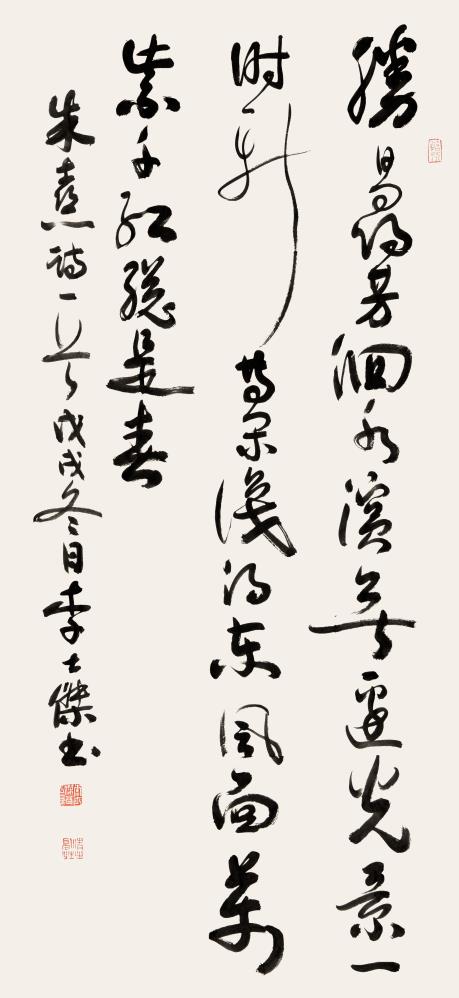 勝日尋芳泗水濱無邊光景一
时新等閑識得东風面萬
紫千紅總是春
朱熹詩一首戊戌冬日李士傑书